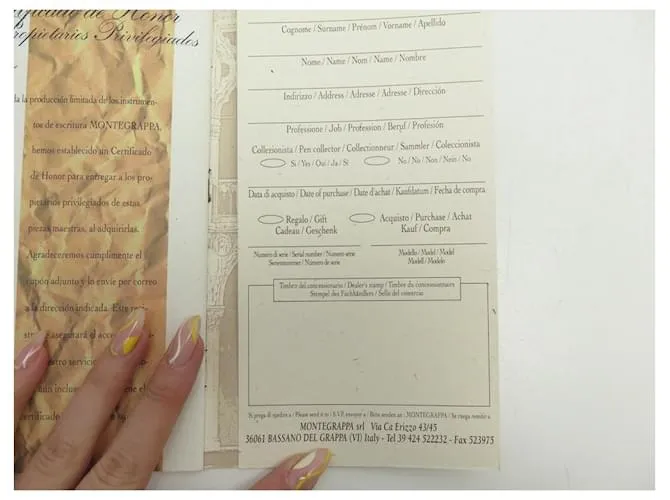 ificado de Honor
ropietarios Privilegiados
da la producción limitada de los instrumen-
tos de escritura MONTEGRAPPA,
hemos establecido un Certificado
de Honor para entregar a los pro-
pietarios privilegiados de estas
piezas maestras, al adquirirlas.
Agradeceremos cumplimente el
cupón adjunto y lo envíe por correo
a la dirección indicada. Este
asegurará el
servicio
aún
certificado
Cognome / Surname / Prénom / Vorname / Apellido
Nome / Name / Nom / Name / Nombre
Indirizzo / Address / Adresse / Adresse / Dirección
Professione / Job / Profession / Beruf / Profesión
Collezionista / Pen collector / Collectionneur / Sammler / Coleccionista
Si / Yes / Oui / Ja / Sí
No / No / Non / Nein / No
Data di acquisto / Date of purchase / Date d'achat / Kaufdatum / Fecha de compra
Regalo / Gift
Cadeau / Geschenk
Acquisto / Purchase / Achat
Kauf / Compra
Numero di serie / Serial number / Numero serie
Seriennummer / Número de serie
Modello / Model / Model
Modell / Modelo
Timbro del concessionario / Dealer's stamp / Timbre du concessionnaire
Stempel des Fachhändlers / Sello del comercio
Si prega di spedire a / Please send it to / S.V.P. envoyer a / Bitte senden an : MONTEGRAPPA / Se ruega remitir a
MONTEGRAPPA srl Via Ca Erizzo 43/45
36061 BASSANO DEL GRAPPA (VI) Italy - Tel 39 424 522232 - Fax 523975